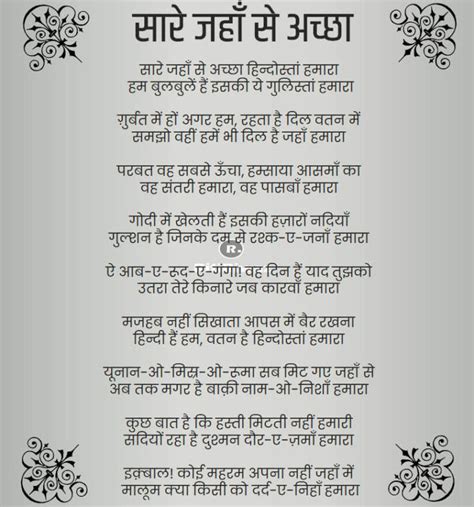 सारे जहाँ से अच्छा
सारे जहाँ से अच्छा हिन्दोस्तां हमारा
हम बुलबुलें हैं इसकी ये गुलिस्तां हमारा
ग़ुर्बत में हों अगर हम, रहता है दिल वतन में
समझो वहीं हमें भी दिल है जहाँ हमारा
परबत वह सबसे ऊँचा, हम्साया आसमाँ का
वह संतरी हमारा, वह पासबाँ हमारा
गोदी में खेलती हैं इसकी हज़ारों नदियाँ
गुल्शन है जिनके दम से रश्क-ए-जनाँ हमारा
R.
ऐ आब-ए-रूद-ए-गंगा! वह दिन हैं याद तुझको
उतरा तेरे किनारे जब कारवाँ हमारा
मजहब नहीं सिखाता आपस में बैर रखना
हिन्दी हैं हम, वतन है हिन्दोस्तां हमारा
यूनान-ओ-मिस्र-ओ-रूमा सब मिट गए जहाँ से
अब तक मगर है बाक़ी नाम-ओ-निशाँ हमारा
कुछ बात है कि हस्ती मिटती नहीं हमारी
सदियों रहा है दुश्मन दौर-ए-ज़माँ हमारा
इक़्बाल! कोई महरम अपना नहीं जहाँ में
मालूम क्या किसी को दर्द-ए-निहाँ हमारा